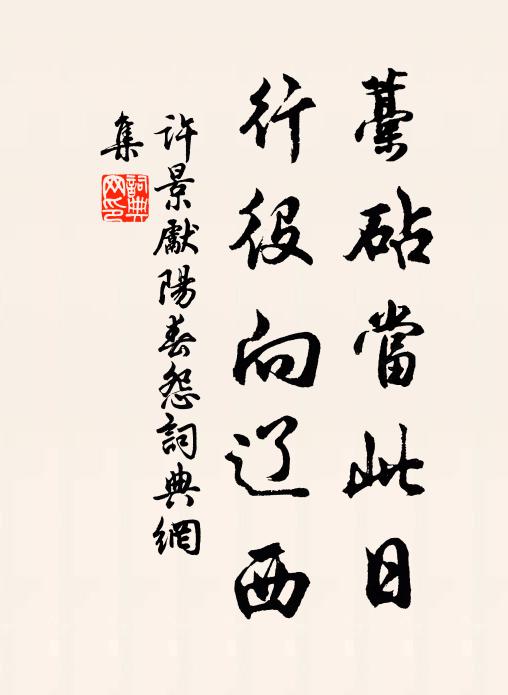 藁砧當此日
行役向辽西
許景獻陽春怨詞典網
集
詞典網印